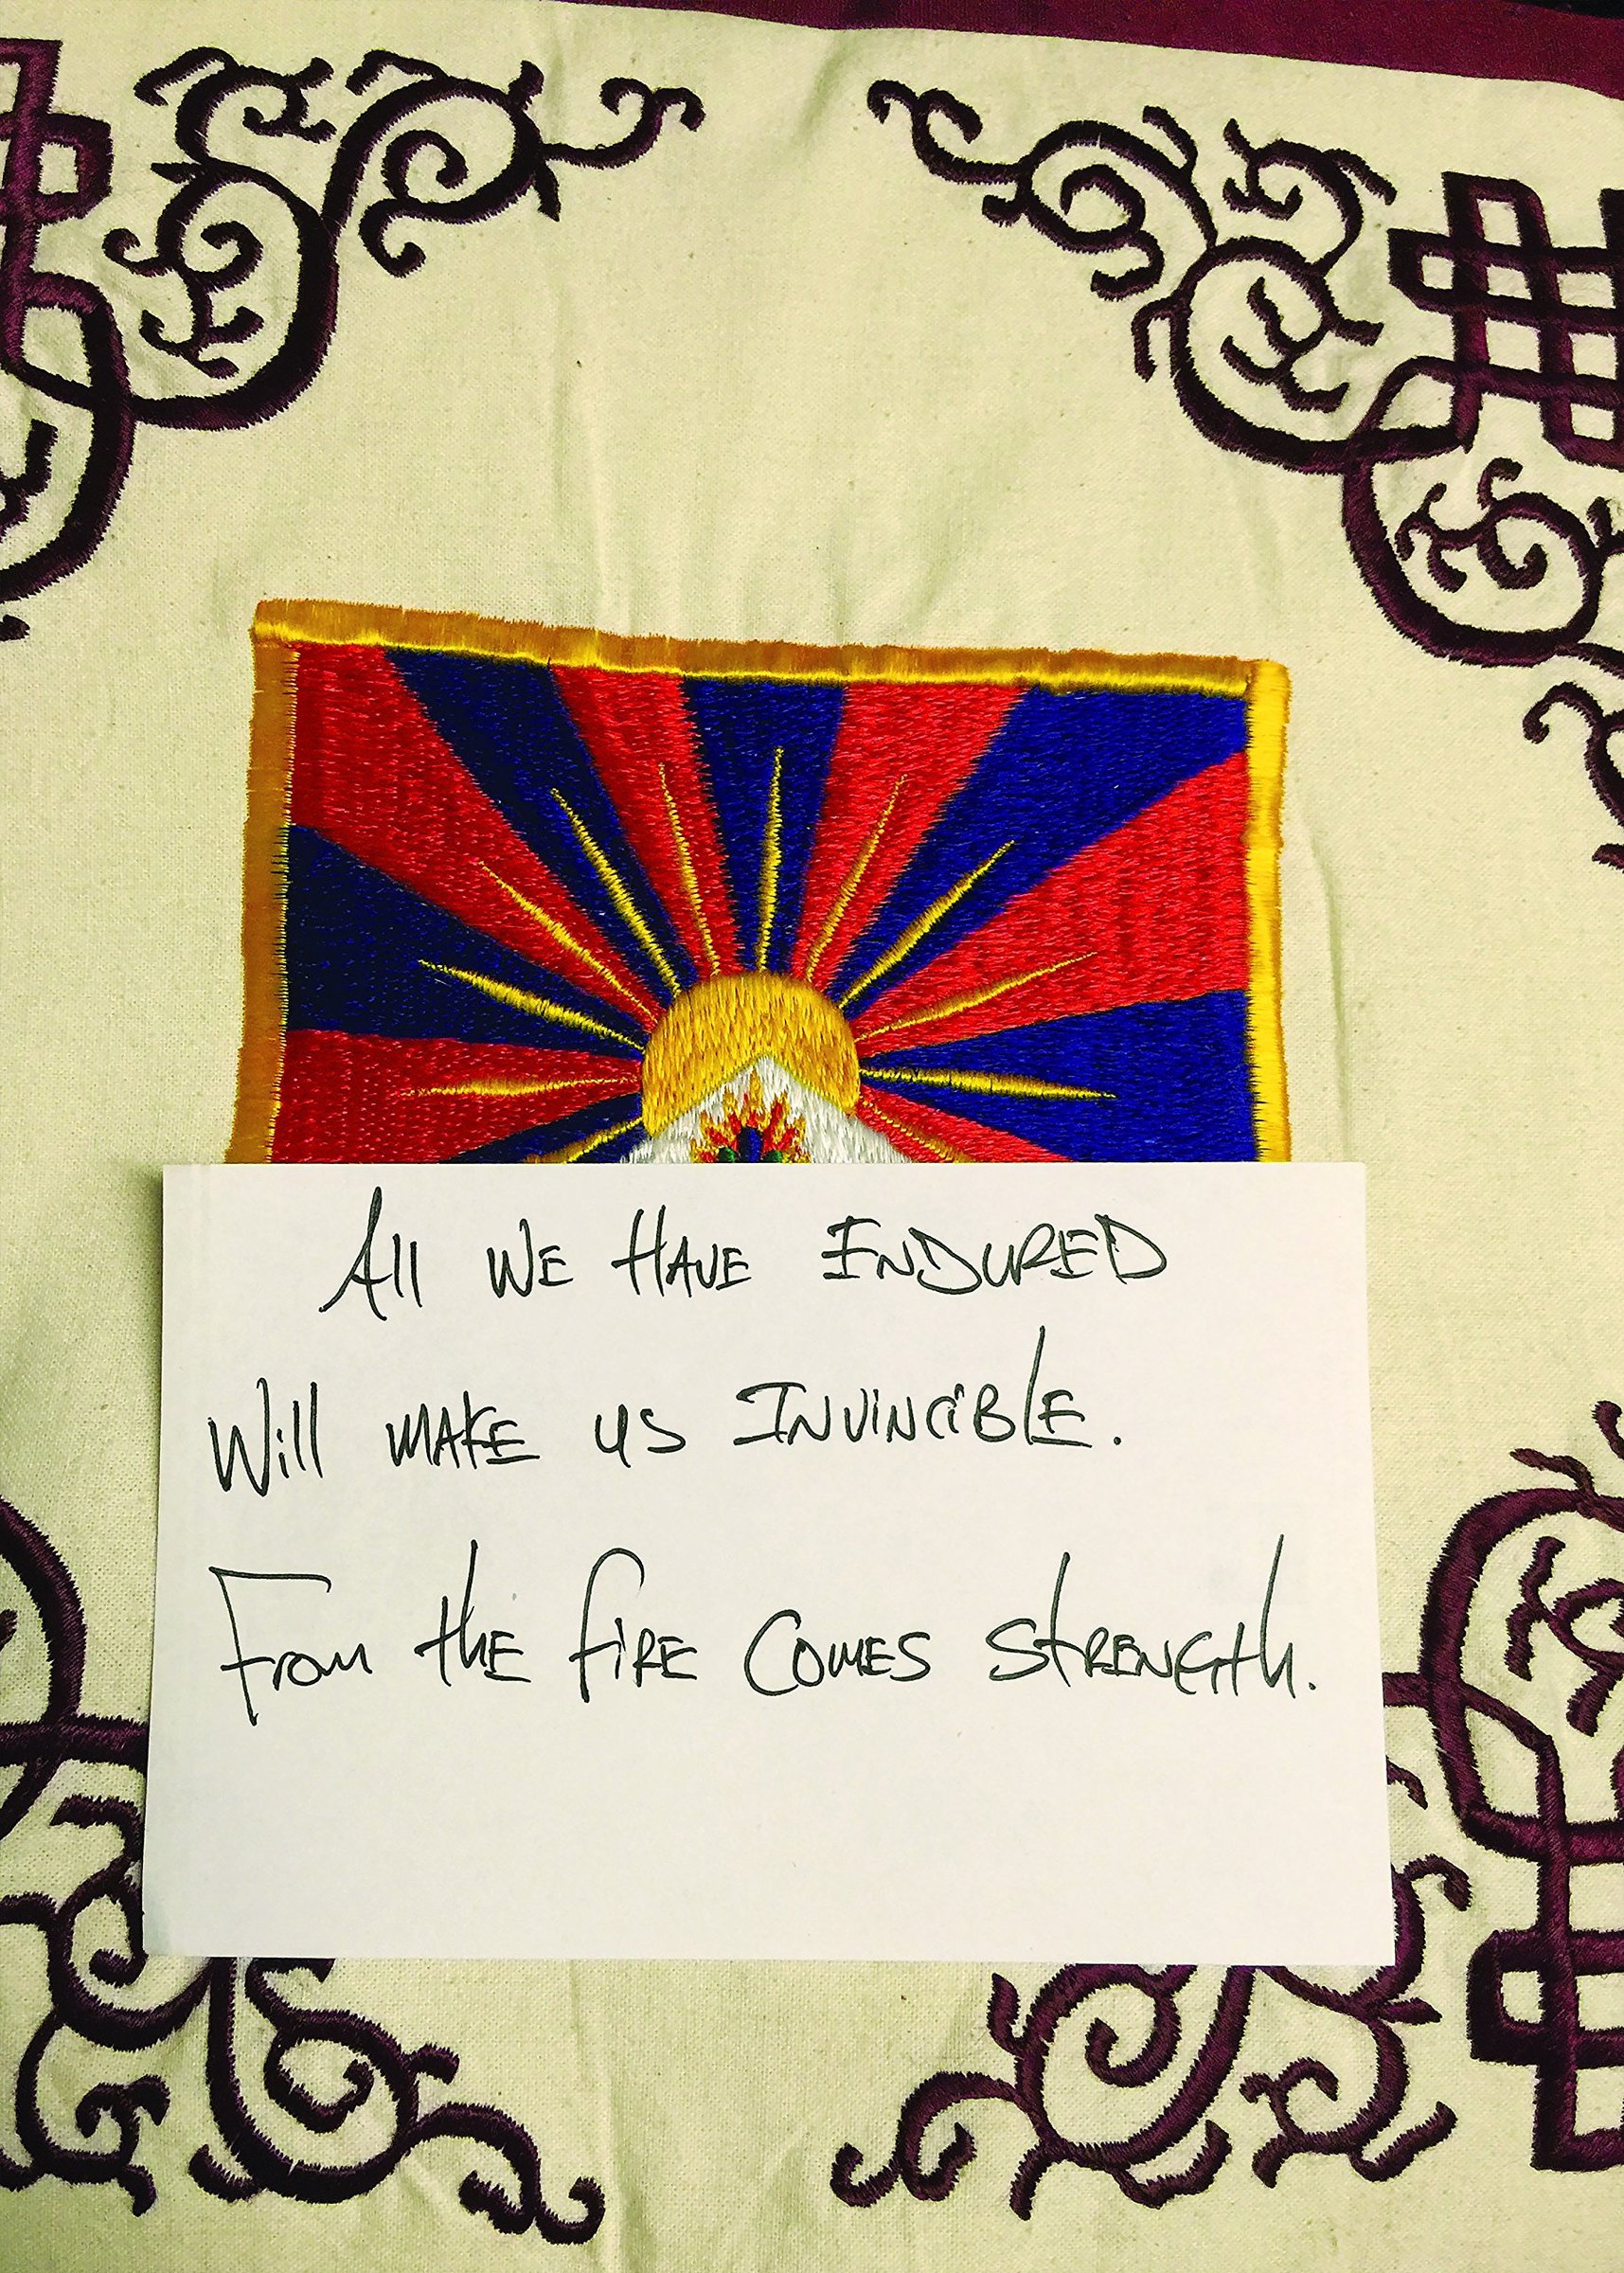 All WE HAVE ENDURED
Will MAKE US INVINCIBLE.
From the fire comes strength.